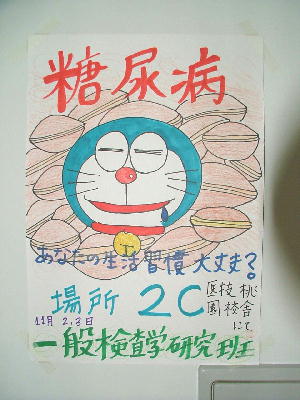 糖尿病
あなたの生活習慣 大丈夫?
場所 2C 医技 桃
園校舎
にて
11月 2,3日
一般検査学研究班